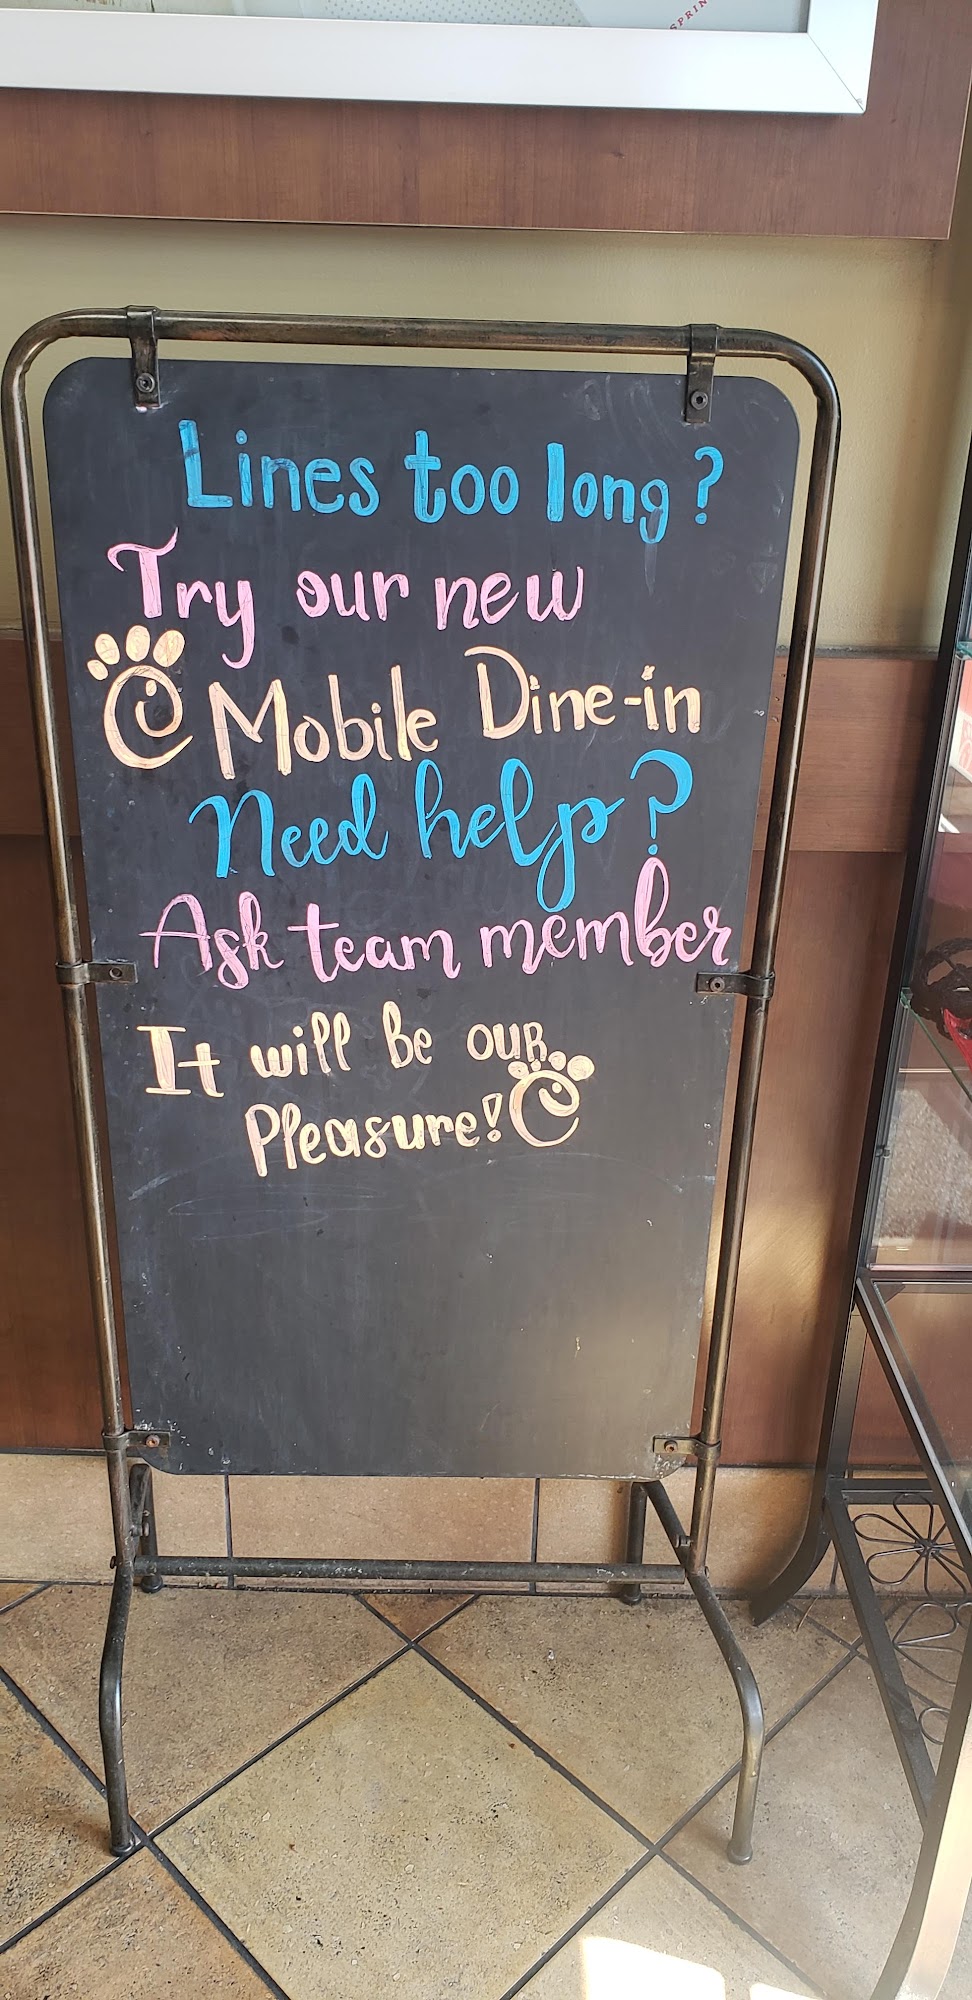 SPRIN
Lines too long?
Try our new
C Mobile Dine-in
Need help?
Ask team member
It will be our
Pleasure! C